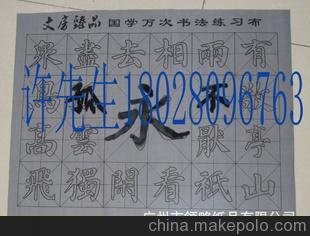 文房臻品 国学万次书法练习布
眾盡去相兩有
鳥孤永不敬
许先生18028096763
高雲厭亭
飛獨閒看祇山
广州市领略纸品有限公司
china.alibaba.com